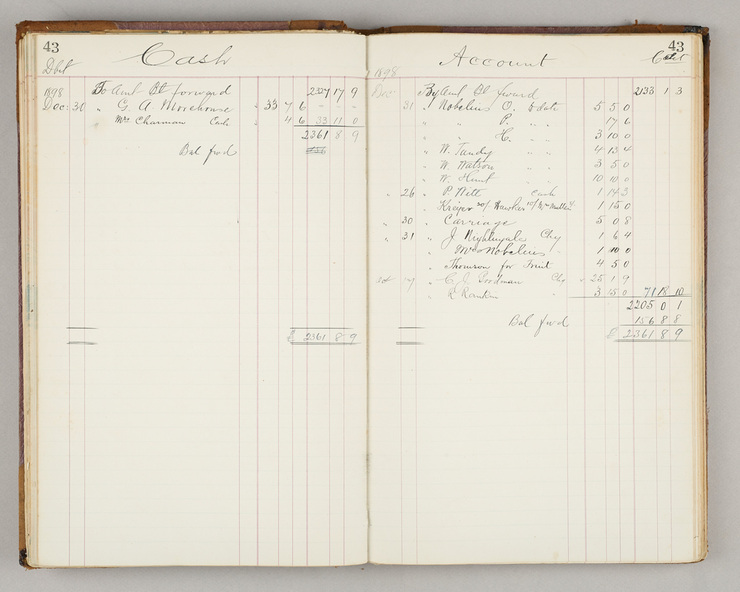 43
Cash
1898 To Amt Bt forward 2 17 9
Dec 30 " G A Morehouse 33 7 6 - - -
Mrs Charman Cash 4 6 33 11 0
2361 8 9
Bal fwd
£ 2361 8 9
43
Account
1898
By Amt Bt forward 2133 1 3
31 " Nobelius O. to date 5 5 0
" " P. " " 17 6
" " H. " " 3 10 0
" W. Tandy " " 4 13 4
" W. Watson " " 3 5 0
" W. Hunt " " 10 10 0
" 26 " P Witt Cash 1 14 3
1 15 0
" 30 " Carriage 5 0 8
" 31 " J Nightingale Chq 1 6 4
" Mrs Nobelius 1 10 0
" Thomson for Fruit 4 5 0
" C. J. Goodman Chq 25 1 9
" R Rankin " 3 15 0 71 18 10
2205 0 1
Bal fwd 156 8 8
£ 2361 8 9